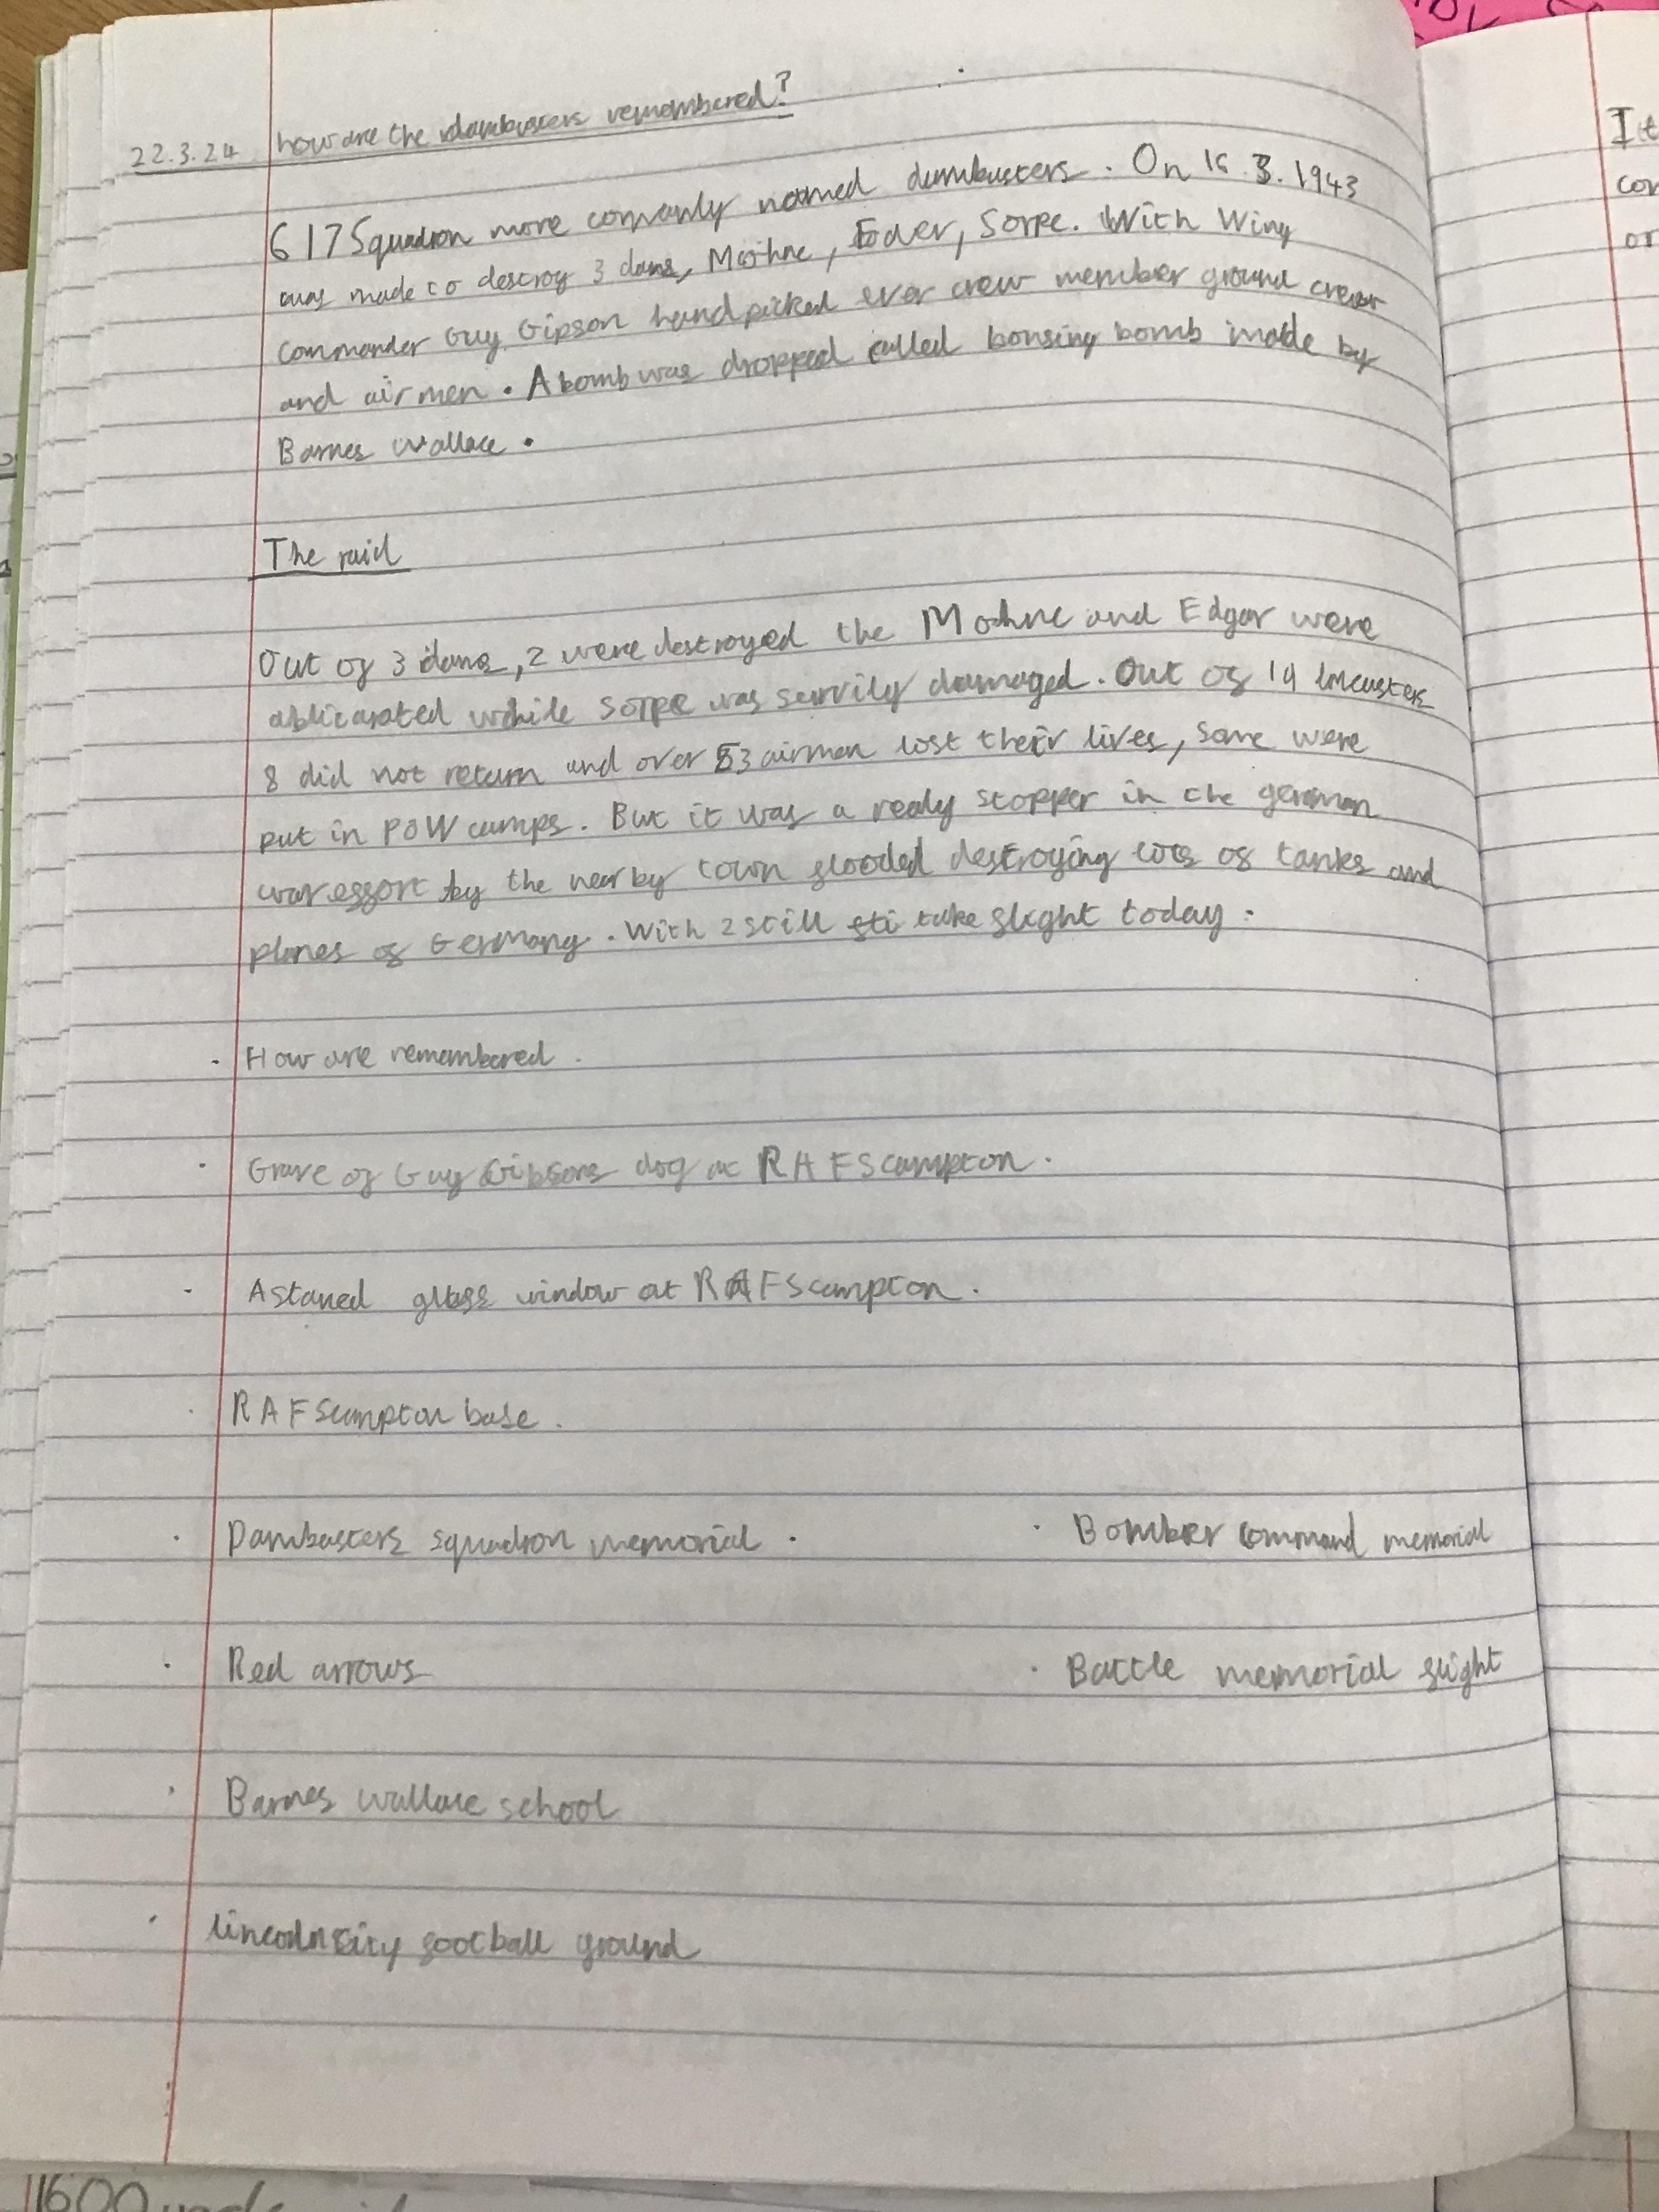 22.3.24 how are the dambusters remembered?
617 Squadron more comanly named dambusters. On 16.3.1943
was made to destroy 3 dams, Moihne, Eoder, Sorpe. With Wing
commander Guy Gipson handpicked ever crew member ground crew
and airmen. A bomb was dropped called bonsing bomb made by
Barnes wallace.
The raid
Out of 3 dams, 2 were destroyed the Mohne and Edgar were
ablicarated while sorpe was survily damaged. Out of 19 lncasters
8 did not return and over 53 airmen lost their lives, some were
put in POW camps. But it was a realy stopper in the german
war effort by the nearby town flooded destroying lots of tanks and
planes of Germany. With 2 still sti take flight today.
· How are remembered.
· Grave of Guy Gibsons dog at RAF Scampton.
· A staned glass window at RAF Scampton.
· RAF Scampton base.
· Dambusters squadron memorial. · Bomber command memorial
· Red arrows · Battle memorial flight
· Barnes wallace school
· lincoln city football ground
It
con
or
1600